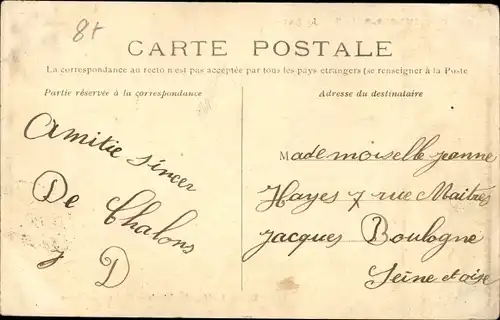 8t
CARTE POSTALE
La correspondance au recto n'est pas acceptée par tous les pays étrangers (se renseigner à la Poste
Partie réservée à la correspondance
Adresse du destinataire
Amitie sincer
De Chalons
J D
Mademoiselle jeanne
Hayes 7 rue Maitres
jacques Boulogne
Seine et oise